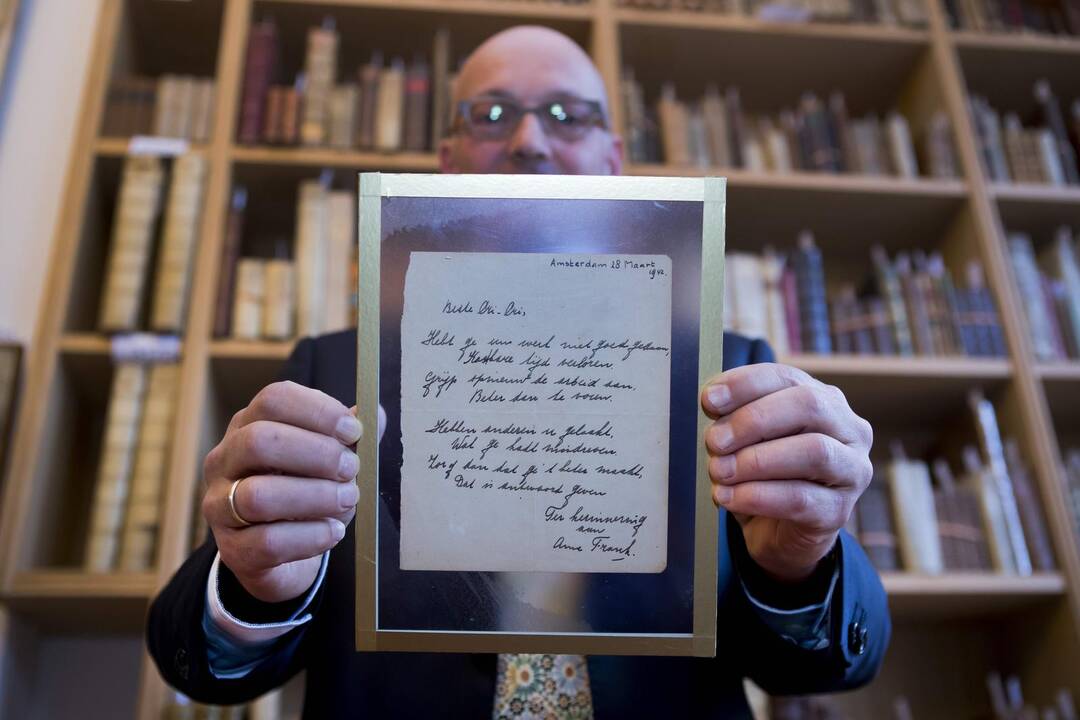 Amsterdam 28 Maart
1942.
Beste Cri-Cri,
Hebt ge uw werk niet goed gedaan,
Kostbare tijd verloren,
Grijp opnieuw de arbeid aan.
Beter dan te voren.
Hebben anderen u gelaakt,
Wat ge hadt misdreven
Zorg dan dat ge 't beter maakt,
Dat is antwoord geven
Ter herinnering
aan
Anne Frank.